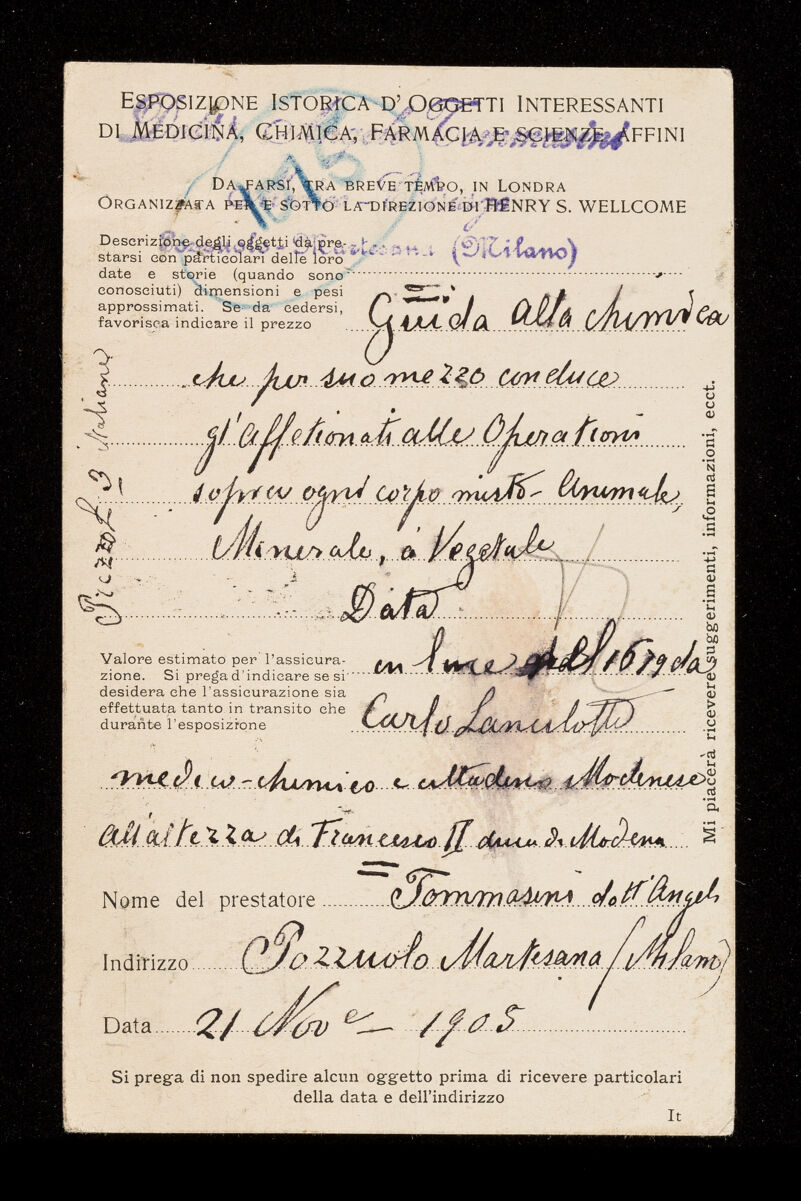 ESPOSIZIONE ISTORICA D' OGGETTI INTERESSANTI
DI MEDICINA, CHIMICA, FARMACIA E SCIENZE AFFINI
Tommasini
1575
DA FARSI, TRA BREVE TEMPO, IN LONDRA
ORGANIZZATA PER E SOTTO LA DIREZIONE DI HENRY S. WELLCOME
Martesana (Milano)
Descrizione degli oggetti da pre-
starsi con particolari delle loro
date e storie (quando sono
conosciuti) dimensioni e pesi
approssimati. Se da cedersi,
favorisca indicare il prezzo
Guida alla chimica
che per suo mezzo conduce
gl'affetionati alle Operationi
sopra ogni corpo misto - Animale,
Minerale, ò Vegetale
Data
Valore estimato per l'assicura-
zione. Si prega d'indicare se si
desidera che l'assicurazione sia
effettuata tanto in transito che
durante l'esposizione
in luce nel 1679 da
Carlo Lancilotti
medico-chimico e cittadino Modenese
all'altezza di Francesco II duca di Modena
Prezzo L 3 italiane
Mi piacerà ricevere suggerimenti, informazioni, ecct.
Nome del prestatore Tommasini dott' Angelo
Indirizzo Pozzuolo Martesana (Milano)
Data 21 Nov e - 1905
Si prega di non spedire alcun oggetto prima di ricevere particolari
della data e dell'indirizzo
It